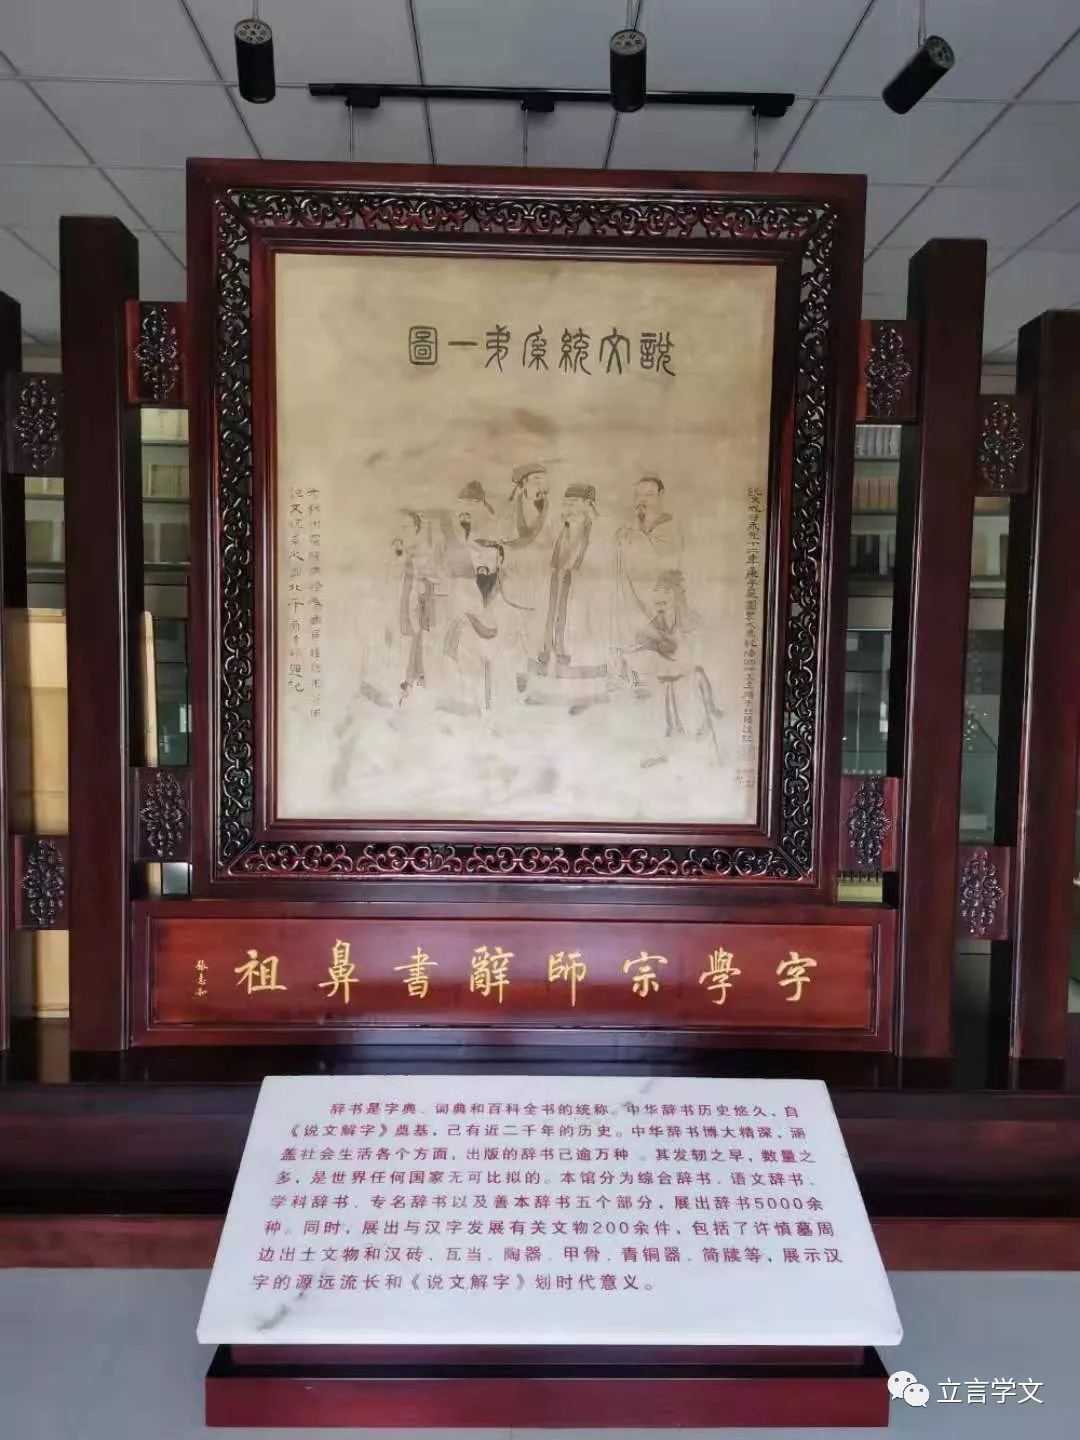 說文統系弟一圖
字學宗師辭書鼻祖
張志和
辞书是字典、词典和百科全书的统称。中华辞书历史悠久，自
《说文解字》奠基，己有近二千年的历史。中华辞书博大精深，涵
盖社会生活各个方面，出版的辞书己逾万种 。其发轫之早，数量之
多，是世界任何国家无可比拟的。本馆分为综合辞书、语文辞书、
学科辞书、专名辞书以及善本辞书五个部分，展出辞书5000余
种。同时，展出与汉字发展有关文物200余件，包括了许慎墓周
边出土文物和汉砖、瓦当、陶器、甲骨、青铜器、简牍等，展示汉
字的源远流长和《说文解字》划时代意义。
立言学文